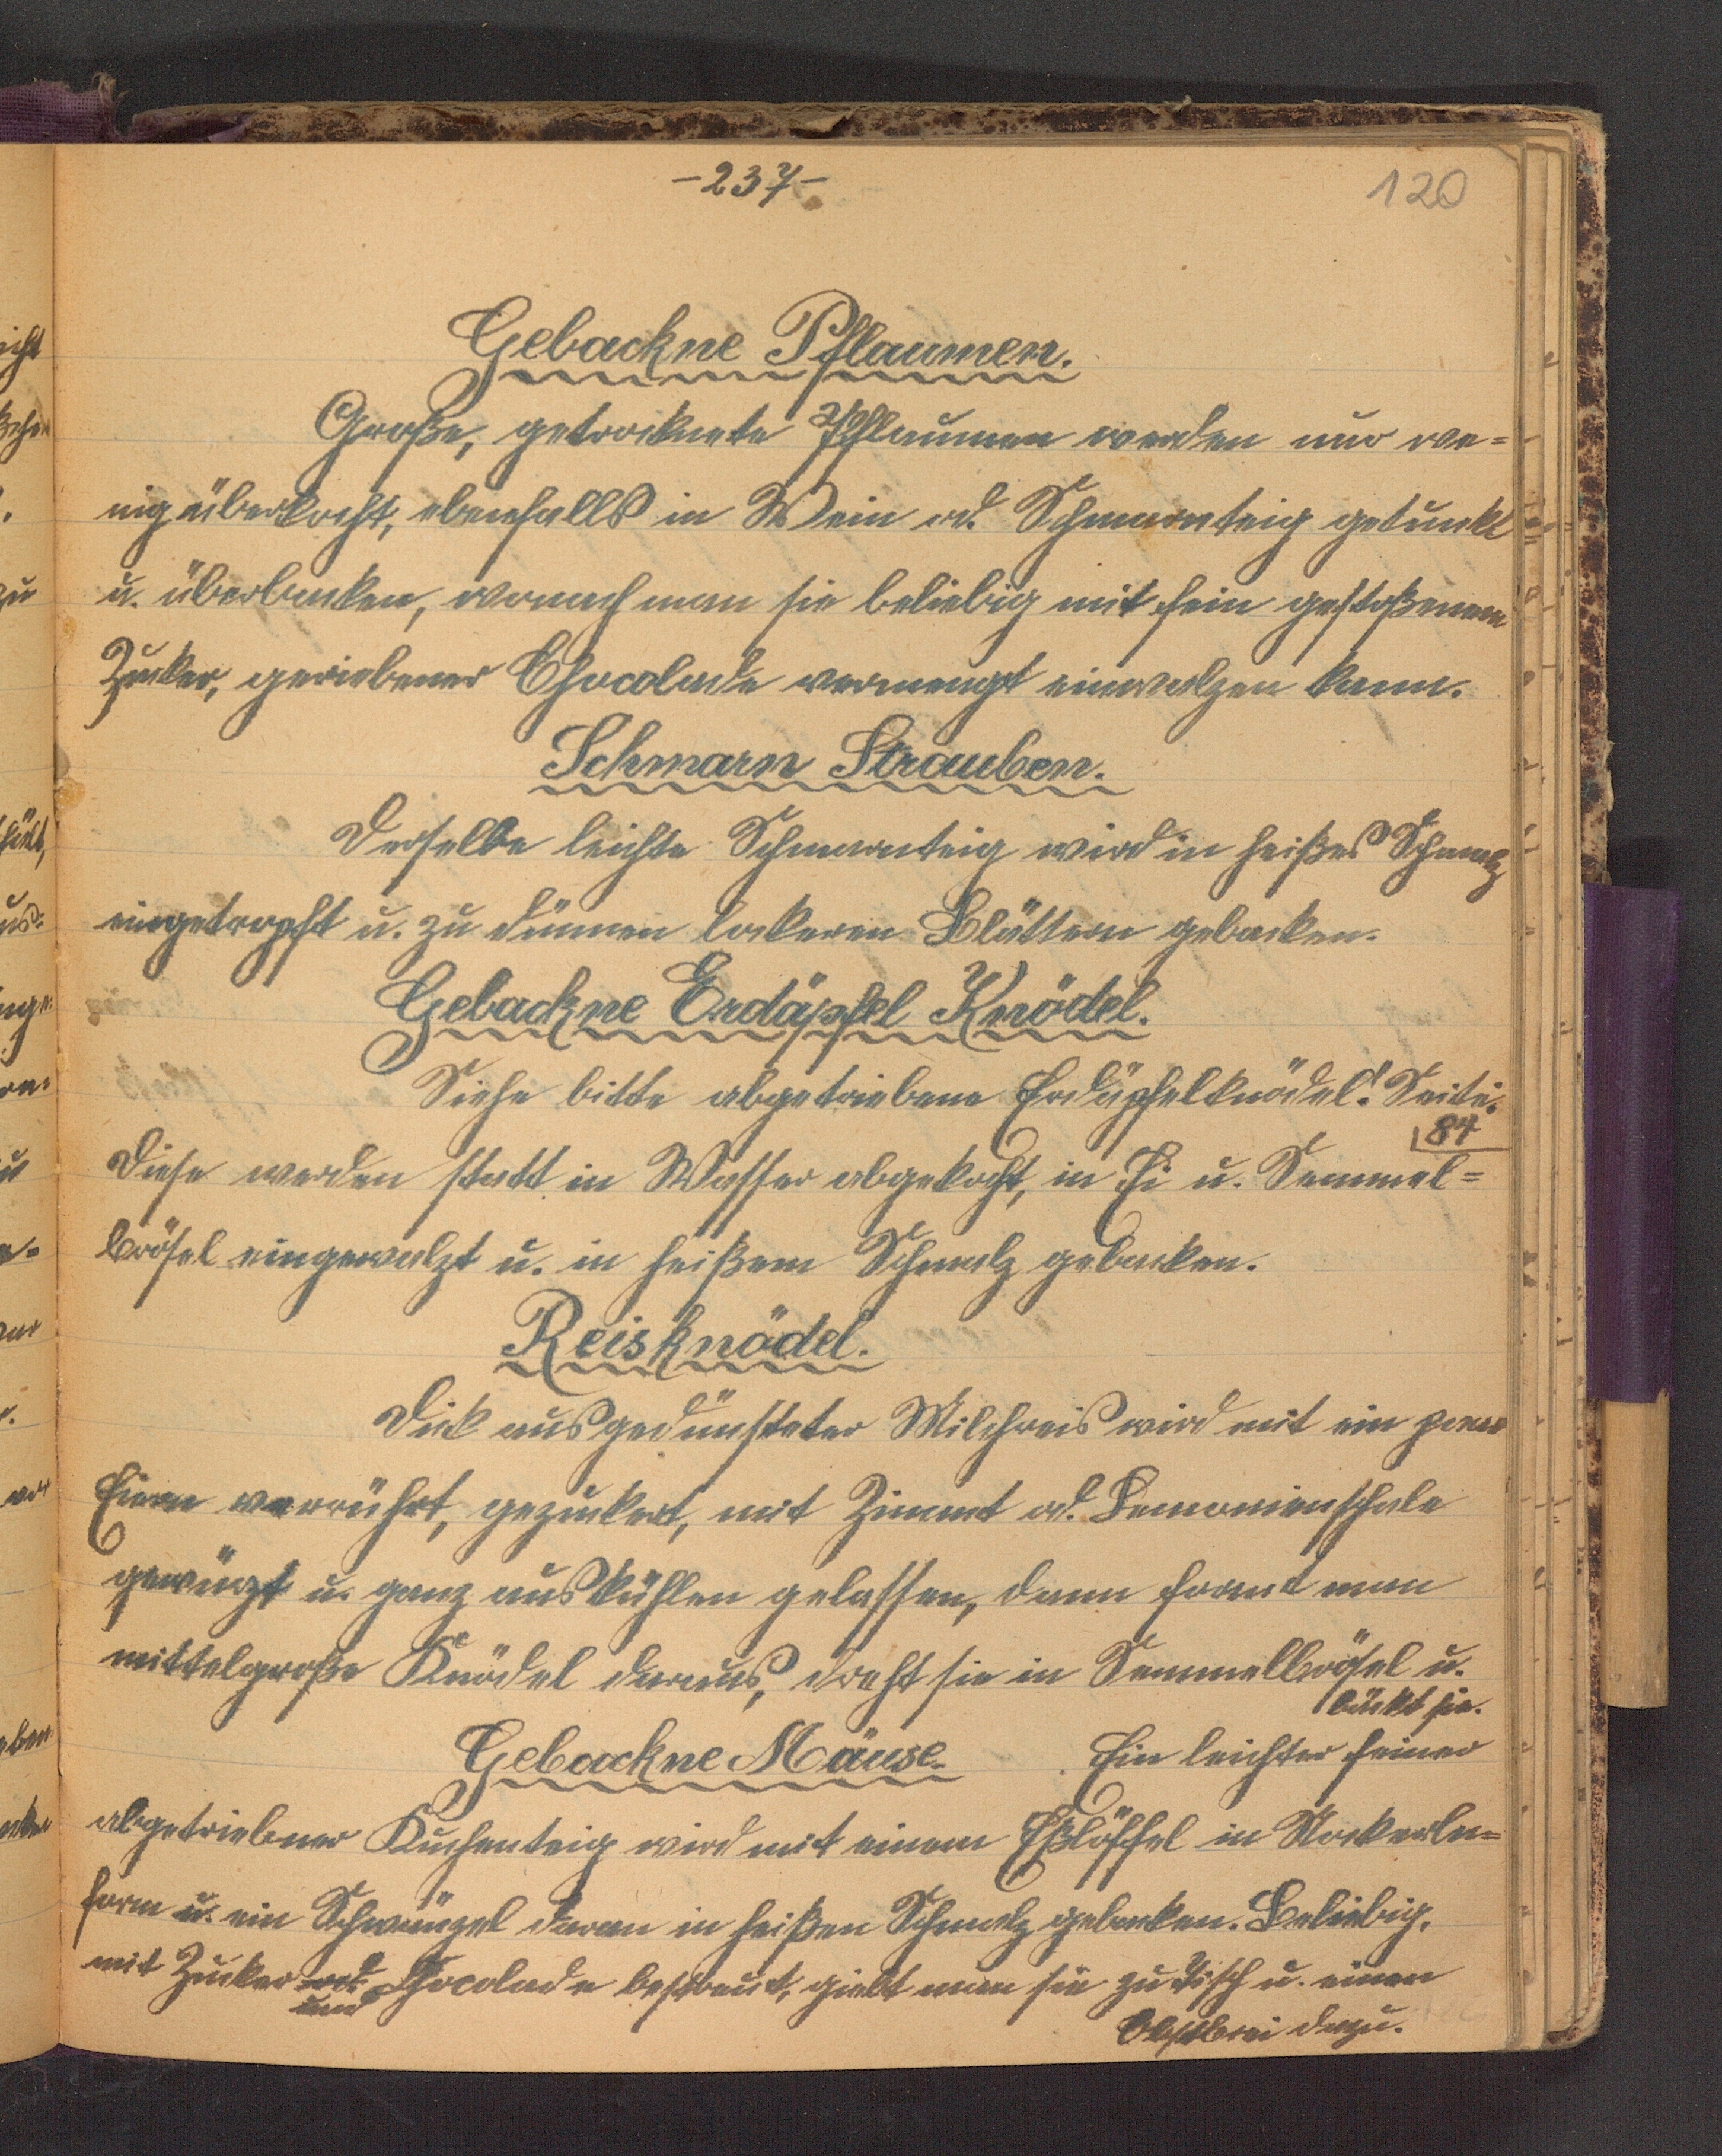 -237-
120
Gebackne Pflaumen.
Große, getrocknete Pflaumen werden nur we=
nig überkocht, ebenfalls in Wein od. Schmarnteig getunkt
u. überbacken, wonach man sie beliebig mit fein gestoßenem
Zucker, geriebener Chocolade vermengt einwalzen kann.
Schmarn Strauben.
Derselbe leichte Schmarnteig wird in heißes Schmalz
eingetropft u. zu dünnen lockeren Blättern gebacken.
Gebackne Erdäpfel Knödel.
Siehe bitte abgetriebene Erdäpfelknödel! Seite.
84
Diese werden statt in Wasser abgekocht, in Ei u. Semmel=
brösel eingewalzt u. in heißem Schmalz gebacken.
Reisknödel.
Dick ausgedünsteter Milchreis wird mit ein paar
Eiern verrührt, gezuckert, mit Zimmt od. Lemonienschale
gewürzt u. ganz auskühlen gelassen, dann formt man
mittelgroße Knödel daraus, dreht sie in Semmelbrösel u.
bäckt sie.
Gebackne Mäuse. Ein leichter feiner
abgetriebener Kuchenteig wird mit einem Eßlöffel in Nockerln=
form u. ein Schwänzel daran in heißen Schmalz gebacken. Beliebig.
mit Zucker od. Chocolade bestreut, giebt man sie zu Tisch u. einen
und
Obstbrei dazu.